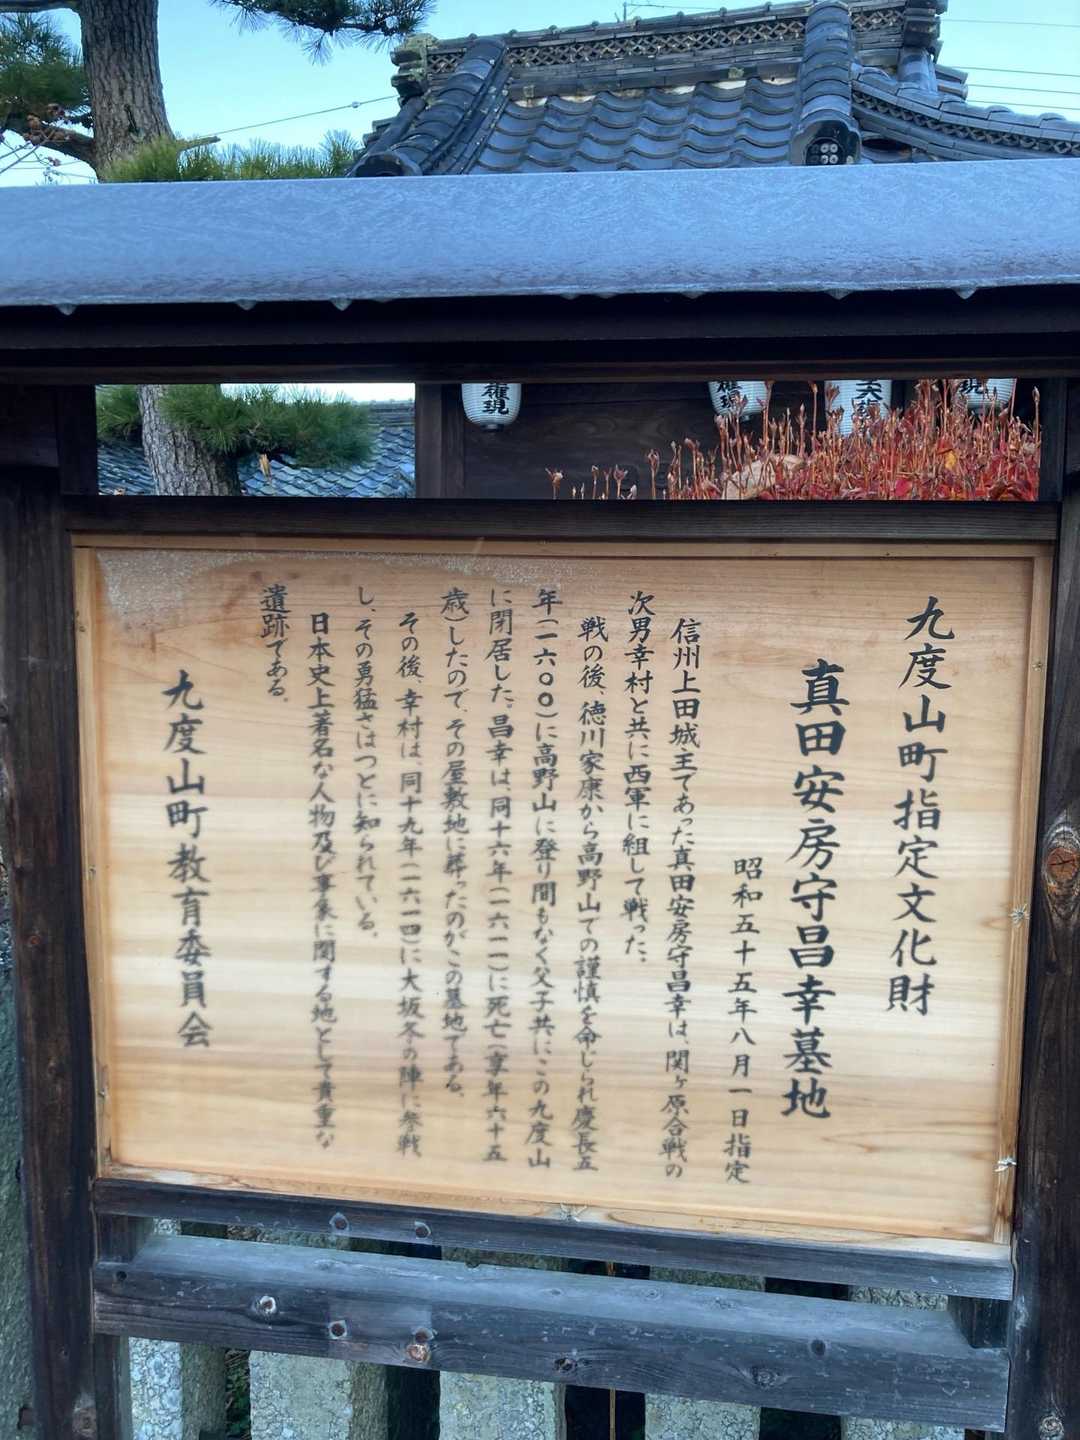 権現
権現
大権
現
九度山町指定文化財
真田安房守昌幸墓地
昭和五十五年八月一日指定
信州上田城主であった真田安房守昌幸は、関ヶ原合戦の
次男幸村と共に西軍に組して戦った。
戦の後、徳川家康から高野山での謹慎を命じられ慶長五
年(一六〇〇)に高野山に登り間もなく父子共にこの九度山
に閉居した。昌幸は、同十六年(一六一一)に死亡(享年六十五
歳)したので、その屋敷地に葬ったのがこの墓地である。
その後、幸村は、同十九年(一六一四)に大坂冬の陣に参戦
し、その勇猛さはつとに知られている。
日本史上著名な人物及び事象に関する地として貴重な
遺跡である。
九度山町教育委員会